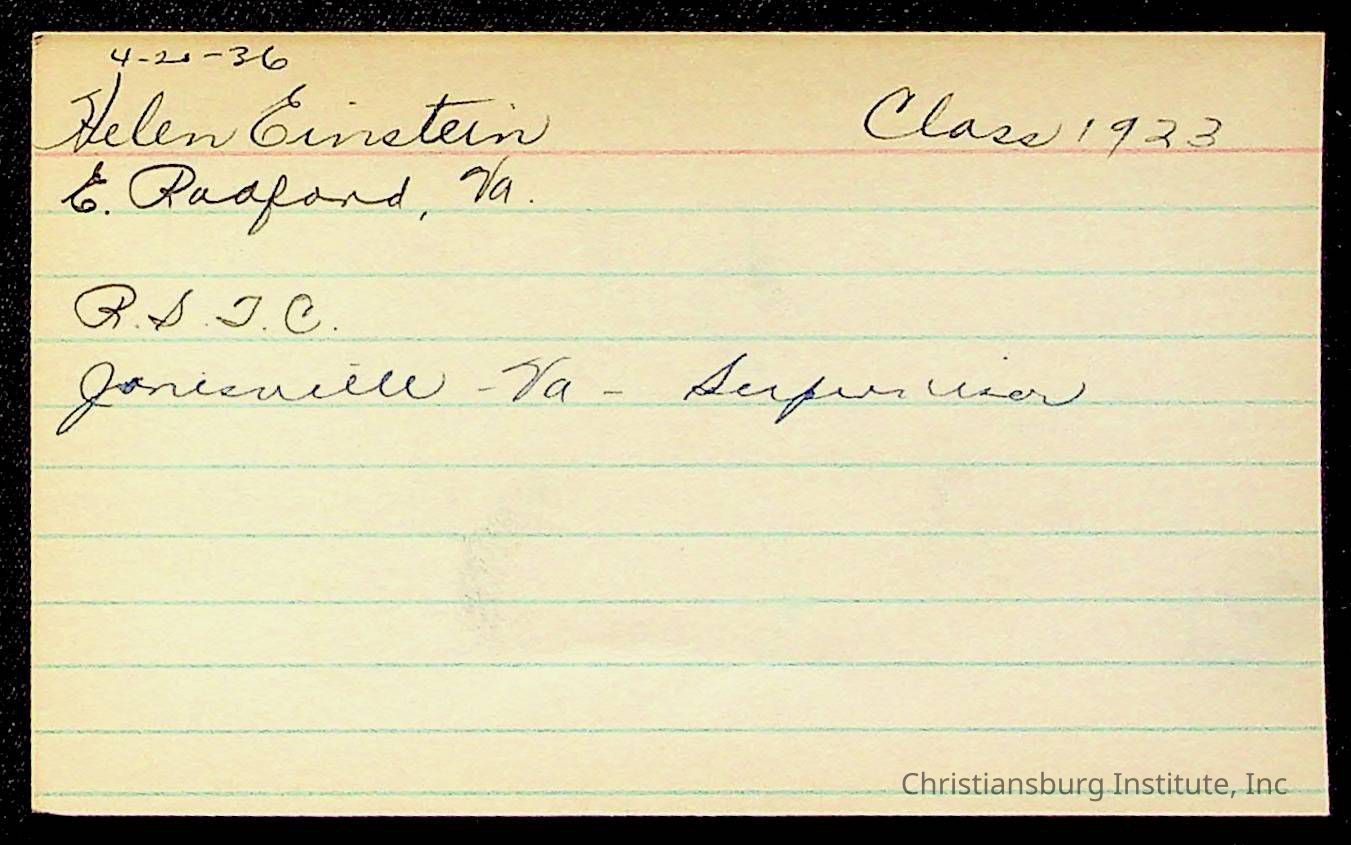 4-20-36
Helen Einstein Class 1923
E. Radford, Va.
R.S.T.C.
Jonesville - Va - Supervisor
Christiansburg Institute, Inc